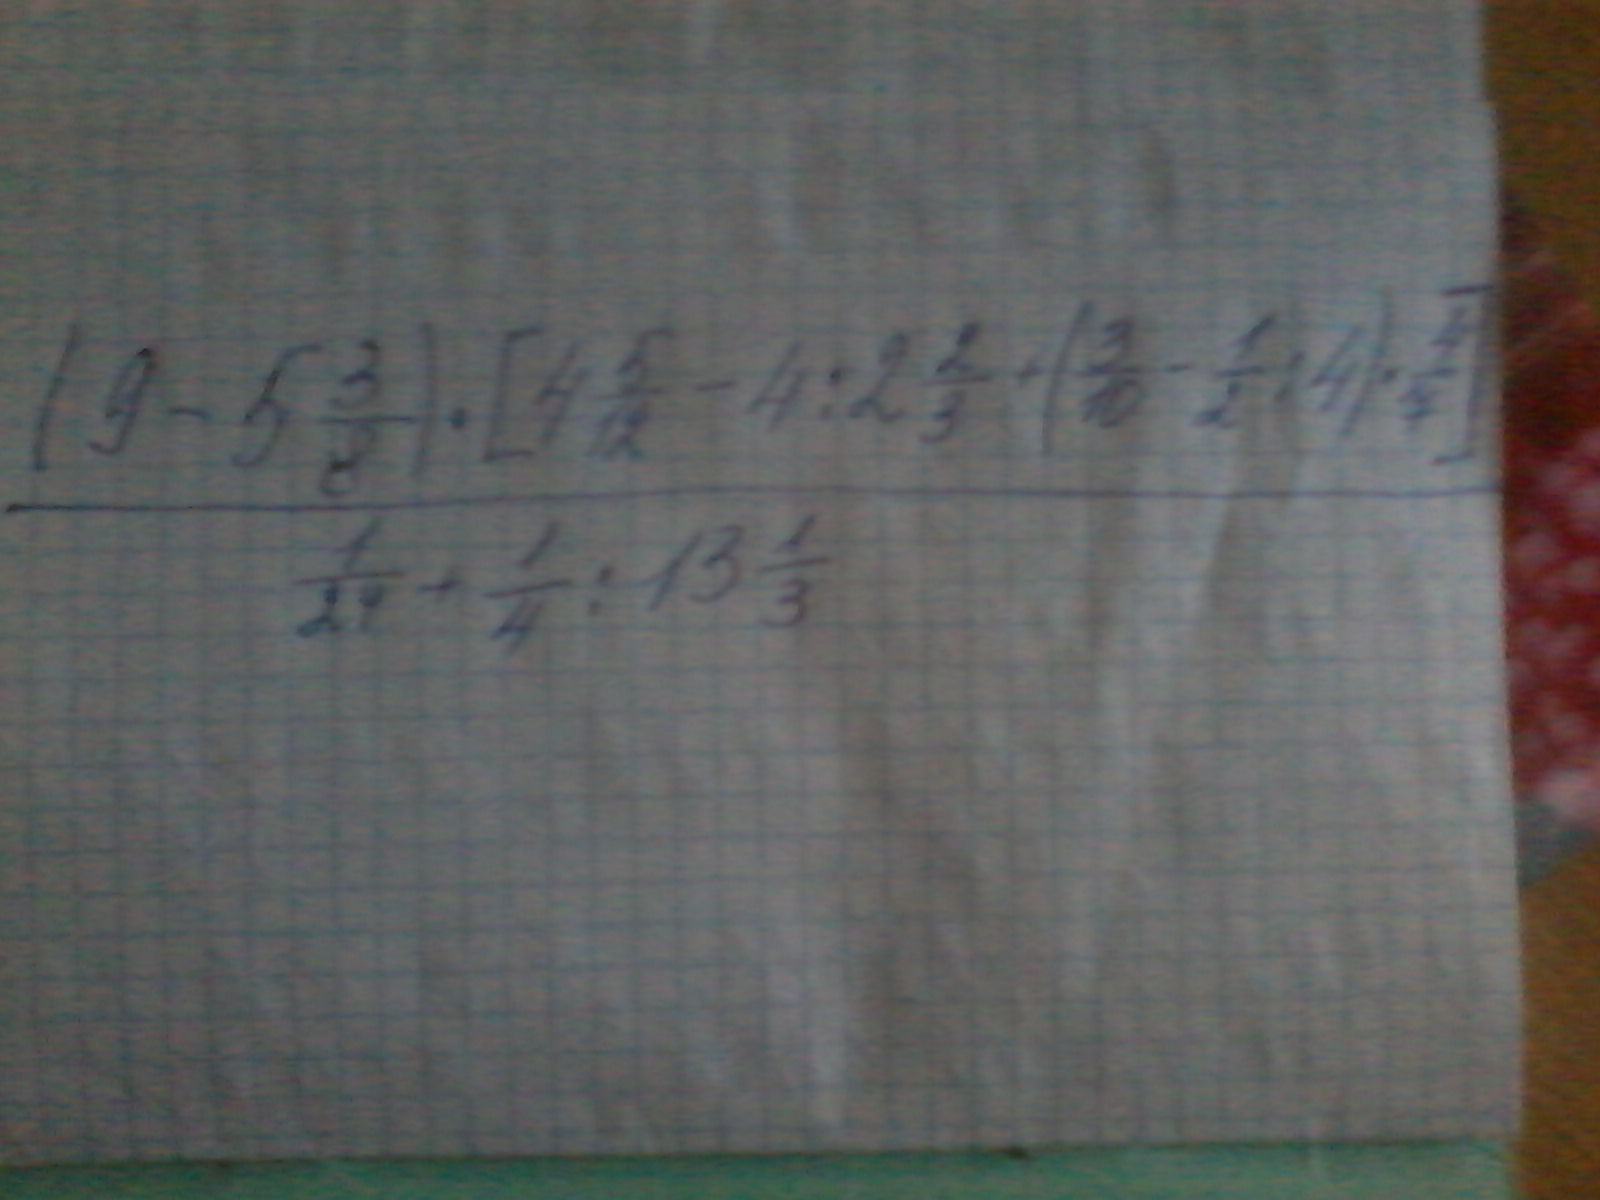 (9 - 5 3/8) · [4 5/12 - 4 : 2 2/3 + (3/10 - 1/2 : 4) · 4/7]
1/24 + 1/4 : 13 1/3